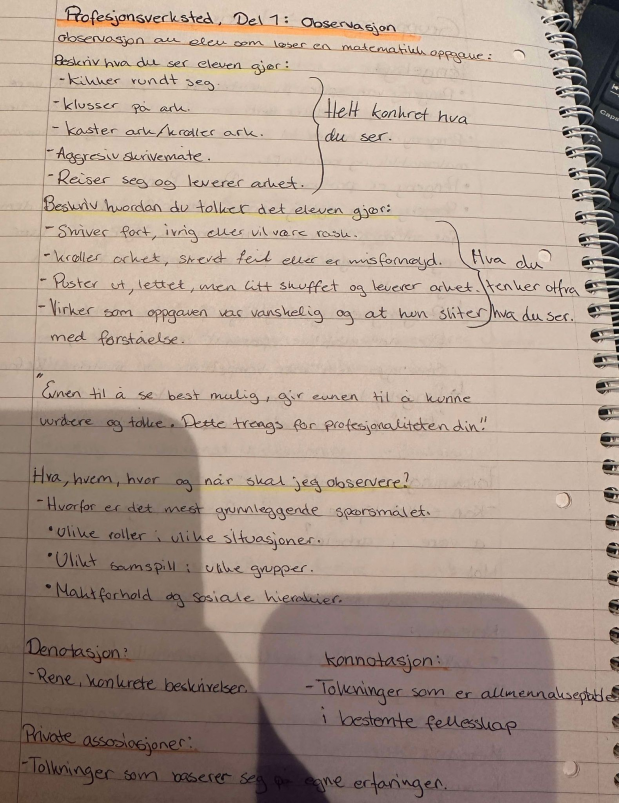 Profesjonsverksted, Del 1: Observasjon
observasjon av elev som løser en matematikk oppgave:
Beskriv hva du ser eleven gjør:
-Kikker rundt seg.
-Klusser på ark.
-Kaster ark/krøller ark.
-Aggresiv skrivemåte.
-Reiser seg og leverer arket.
Helt konkret hva
du ser.
Beskriv hvordan du tolker det eleven gjør:
-Skriver fort, ivrig eller vil være rask.
-Krøller arket, skrevet feil eller er misfornøyd.
-Puster ut, lettet, men litt skuffet og leverer arket.
-Virker som oppgaven var vanskelig og at hen sliter
med forståelse.
Hva du
tenker utfra
hva du ser.
"Evnen til å se best mulig, gir evnen til å kunne
vurdere og tolke. Dette trengs for profesjonaliteten din!"
Hva, hvem, hvor og når skal jeg observere?
-Hvorfor er det mest grunnleggende spørsmålet.
•Ulike roller i ulike situasjoner.
•Ulikt samspill i ulike grupper.
•Maktforhold og sosiale hierakier.
Denotasjon:
-Rene, konkrete beskrivelser.
Konnotasjon:
-Tolkninger som er allmennakseptable
i bestemte fellesskap
Private assosiasjoner:
-Tolkninger som baserer seg på egne erfaringer.